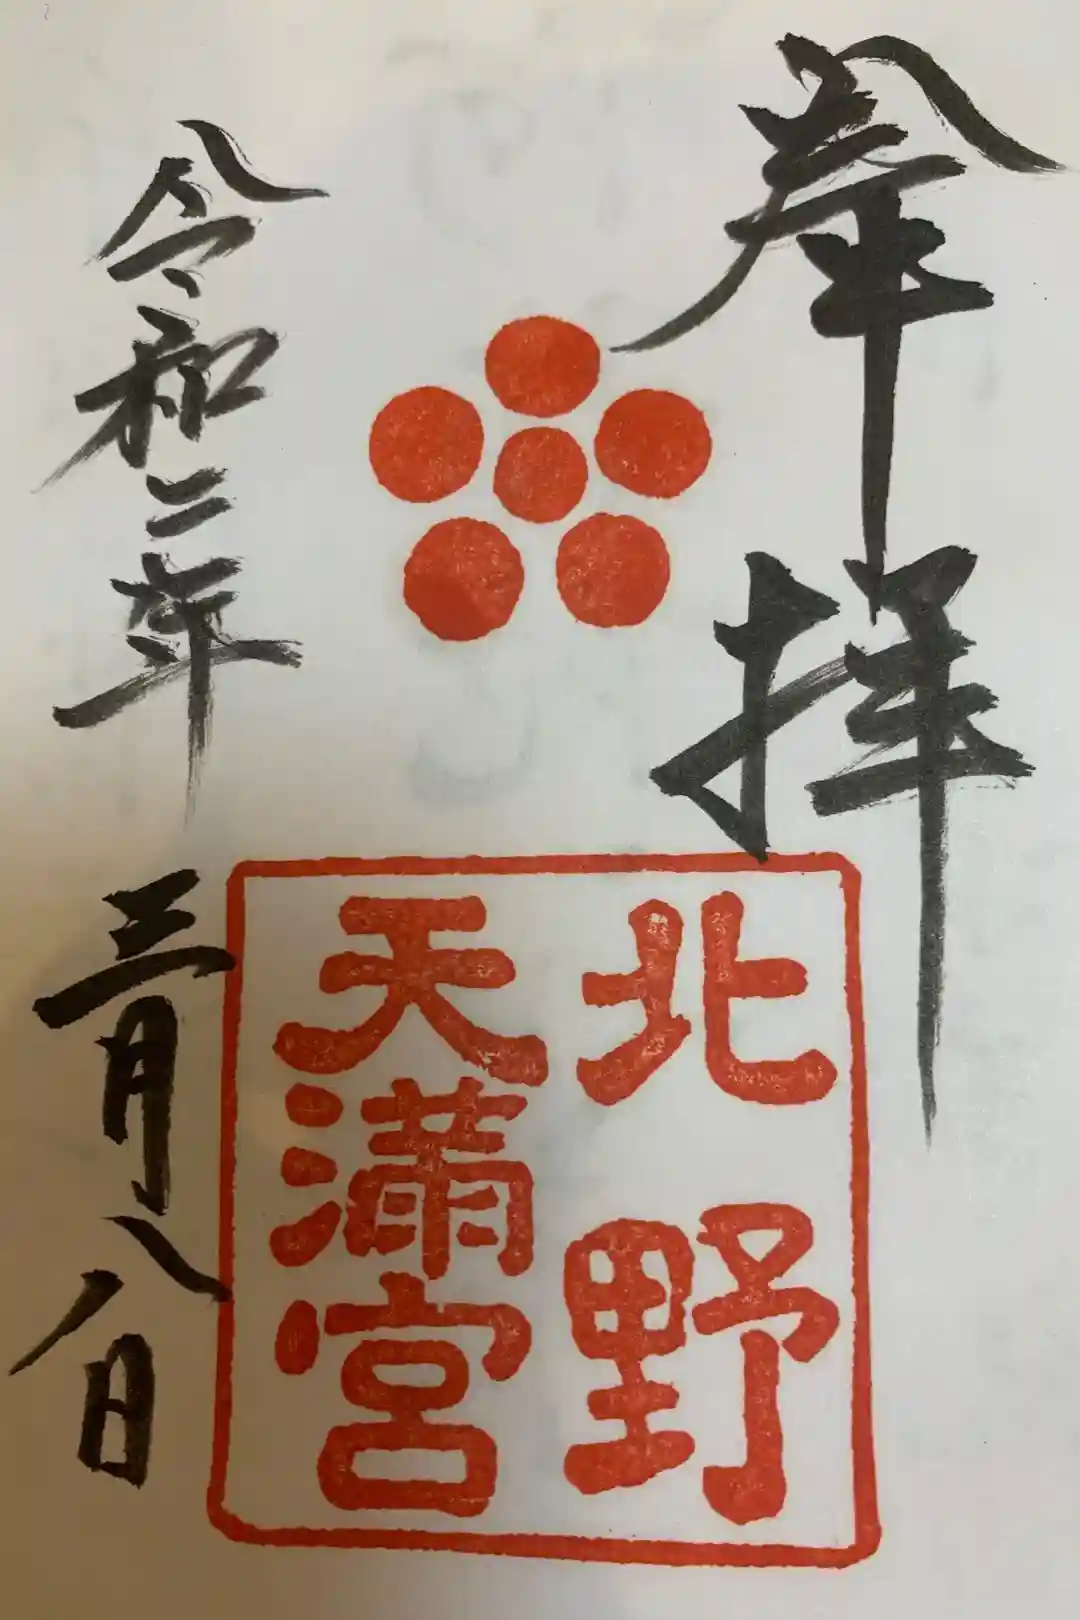 奉拝
北野
天満宮
令和二年三月八日